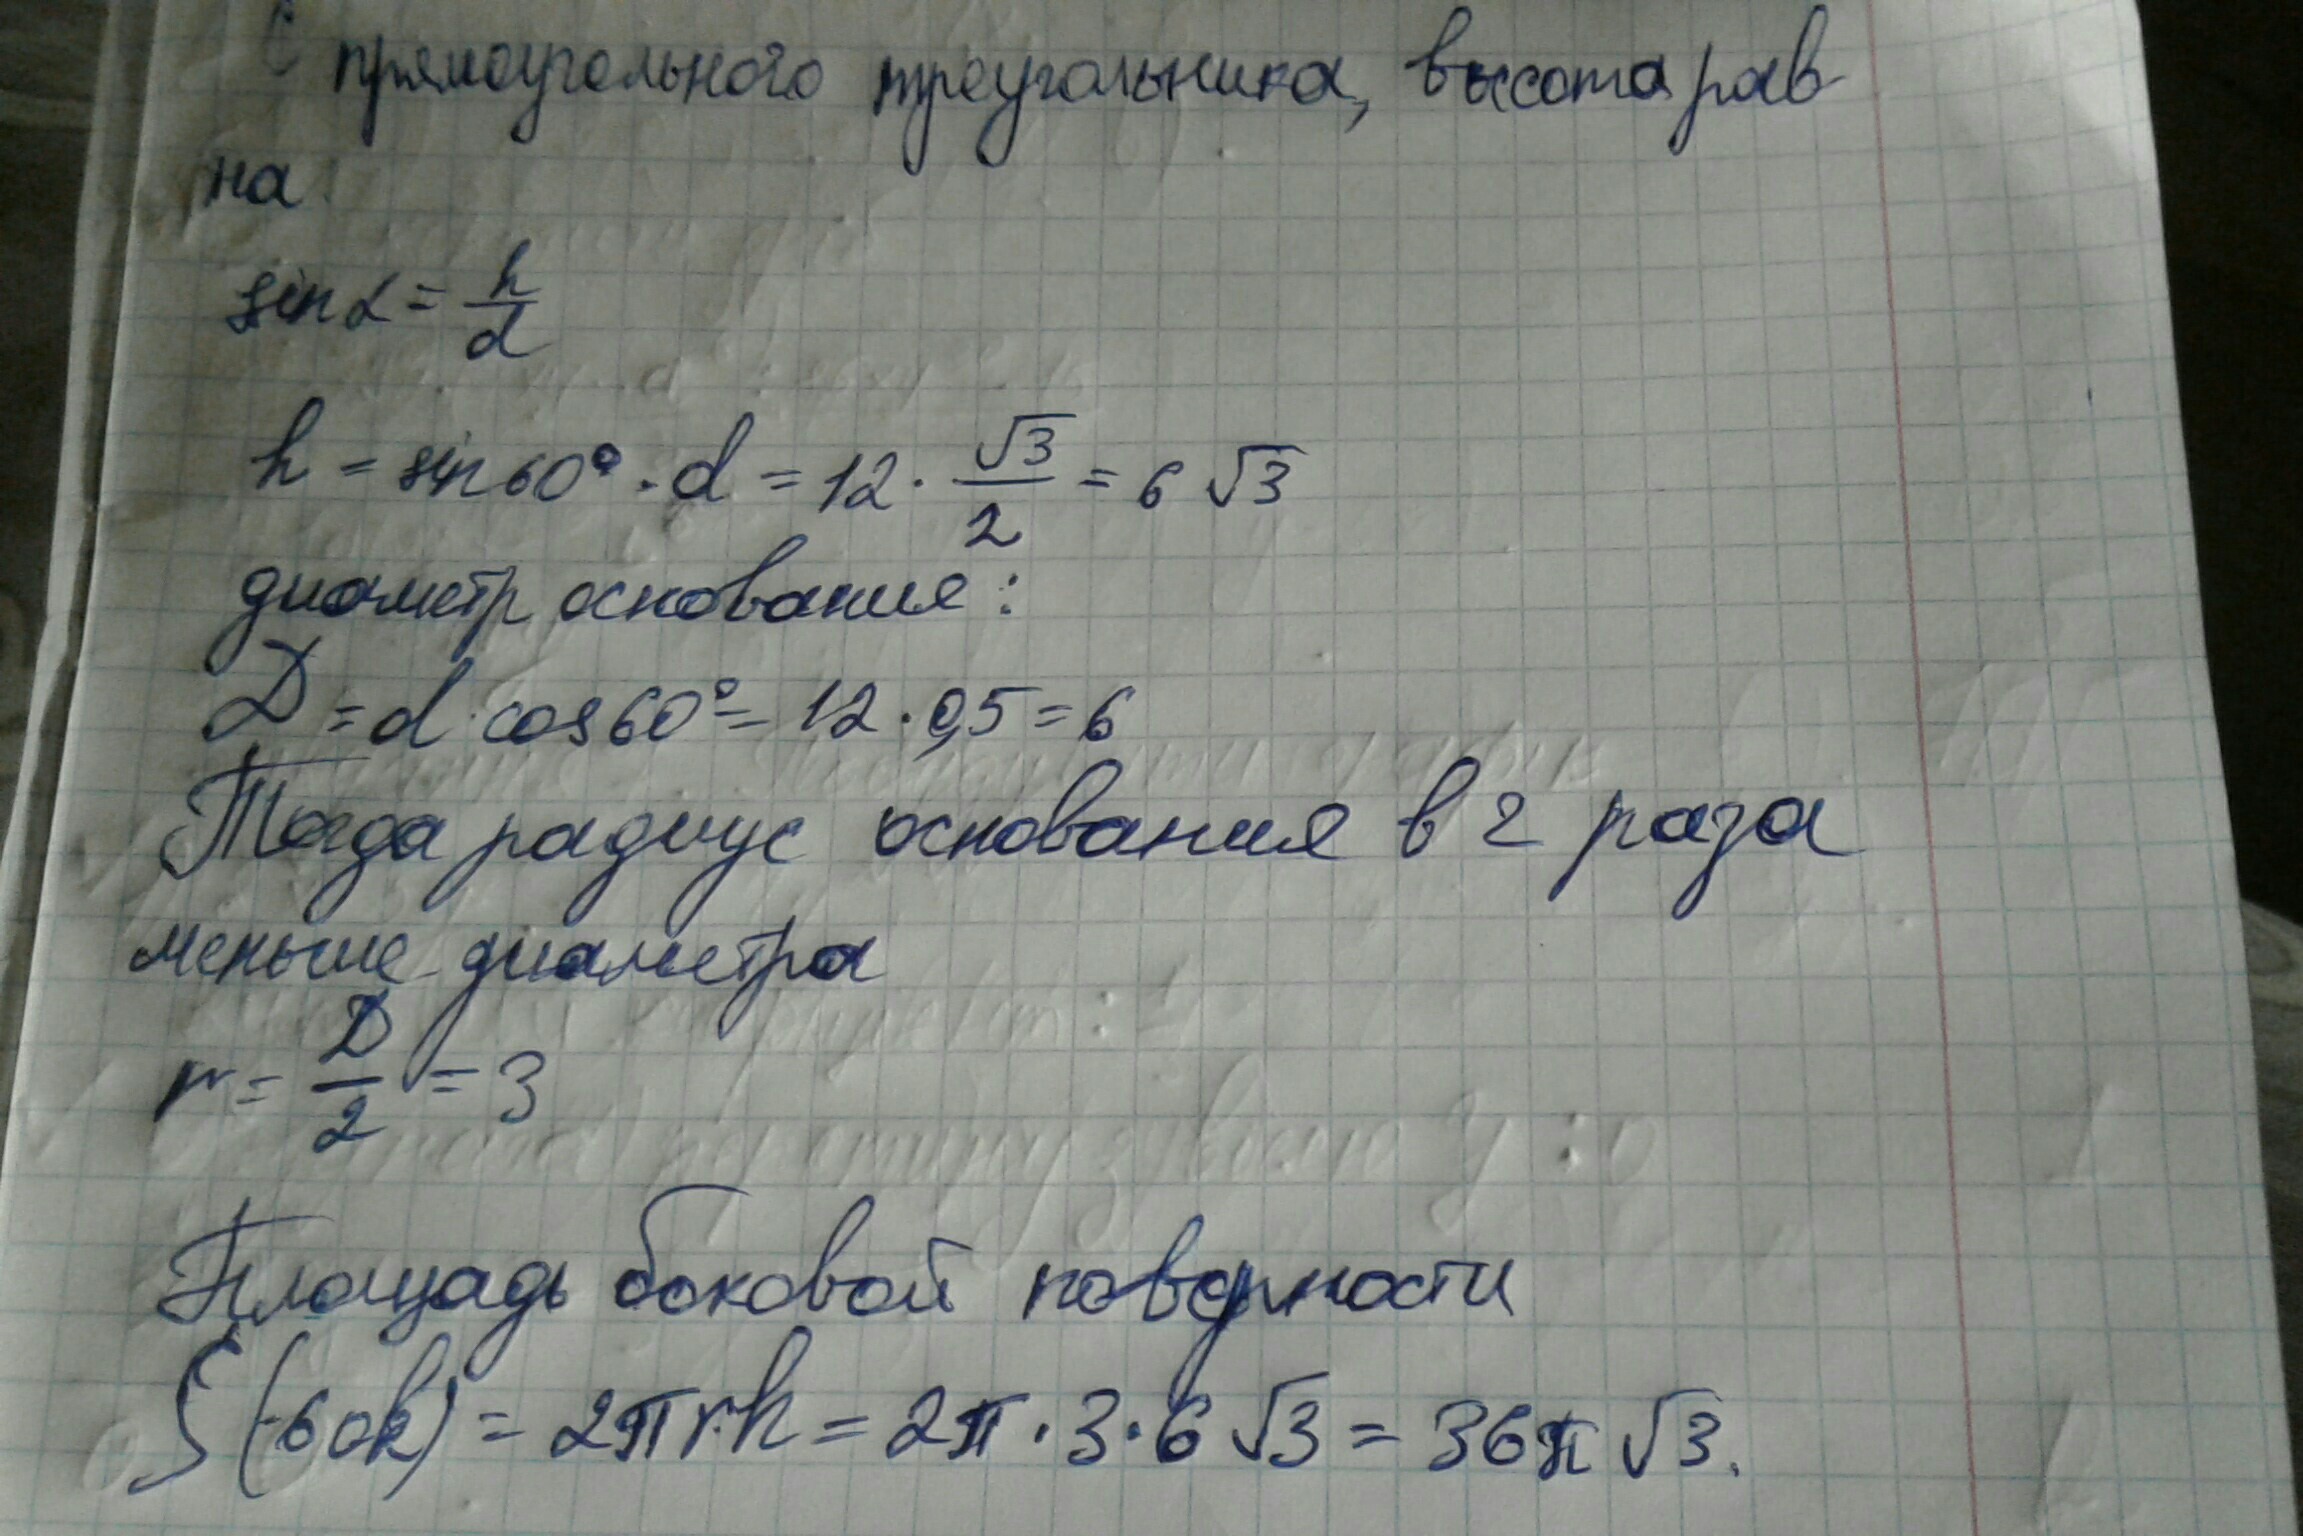 С прямоугольного треугольника, высота рав
на:
sin α = h/d
h = sin 60° · d = 12 · √3/2 = 6 √3
диаметр основания:
D = d · cos 60° = 12 · 0,5 = 6
Тогда радиус основания в 2 раза
меньше диаметра
r = D/2 = 3
Площадь боковой поверхности
S(бок) = 2πr·h = 2π · 3 · 6 √3 = 36π √3.